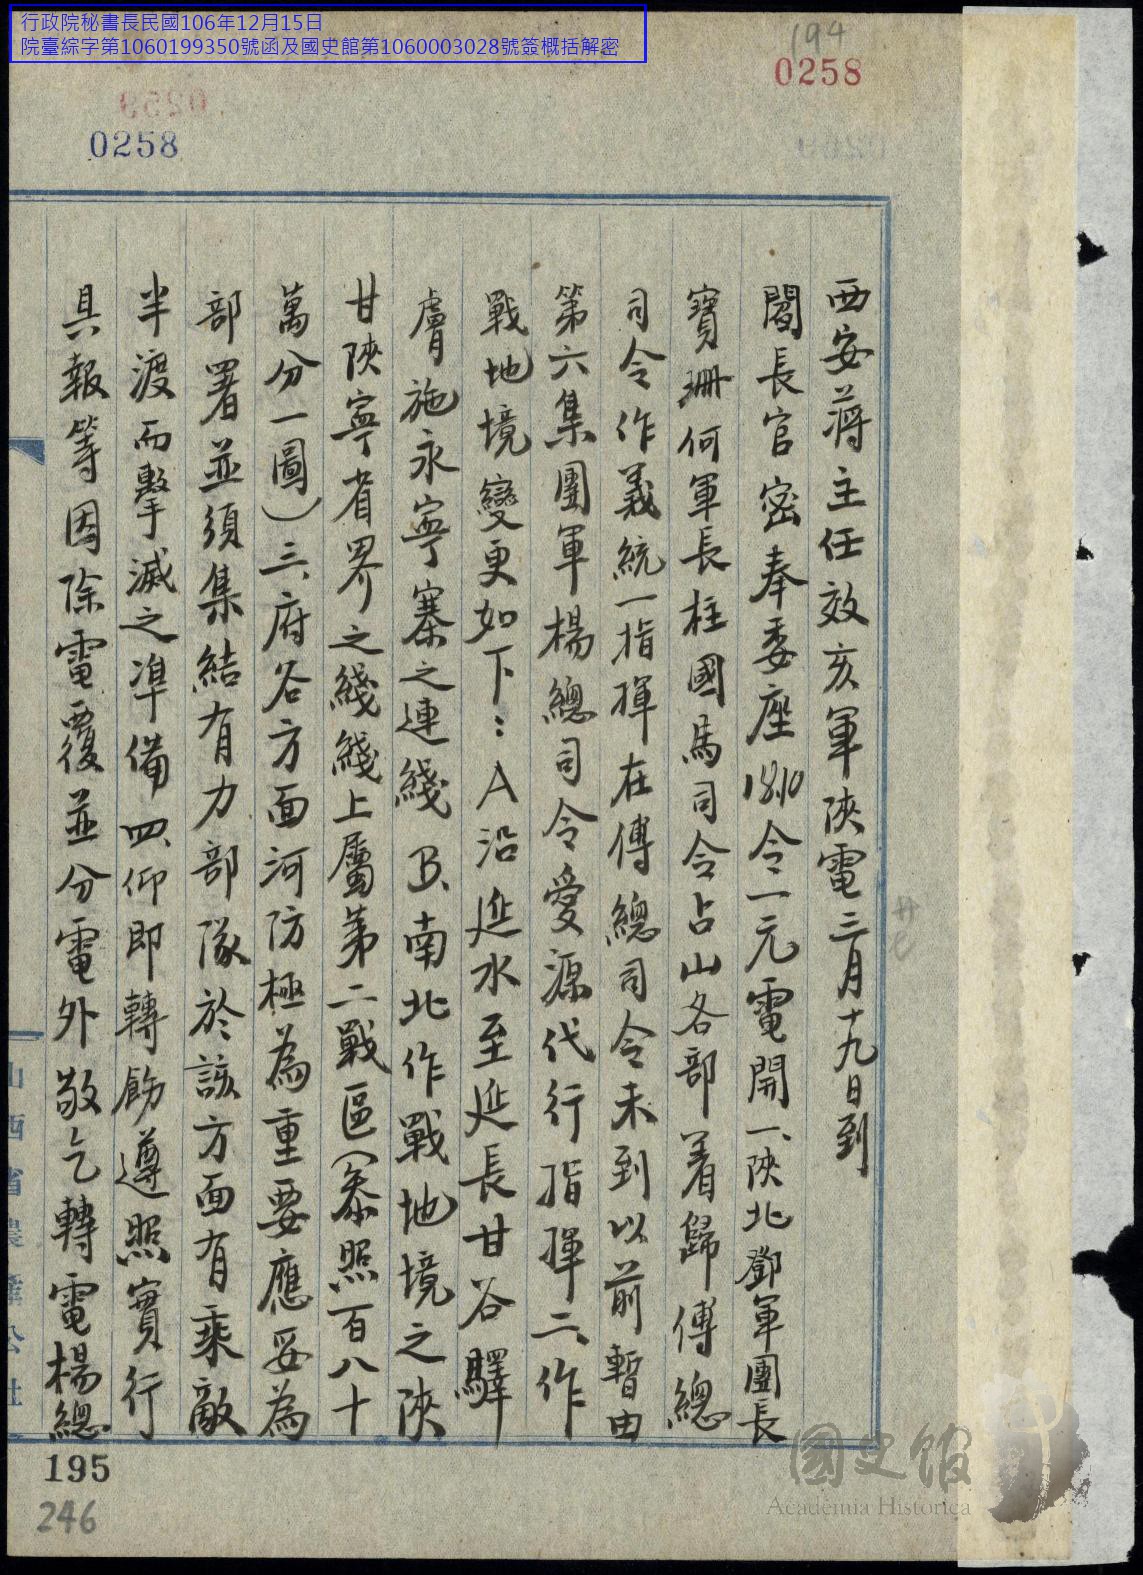 行政院秘書長民國106年12月15日
院臺綜字第1060199350號函及國史館第1060003028號簽概括解密
194
0258
0258
西安蔣主任效亥軍陝電三月十九日到
閻長官密奉委座1810令一元電開一、陝北鄧軍團長
寶珊何軍長柱國馬司令占山各部著歸傅總
司令作義統一指揮在傅總司令未到以前暫由
第六集團軍楊總司令愛源代行指揮二、作
戰地境變更如下:A沿延水至延長甘谷驛
膚施永寧寨之連綫B.南北作戰地境之陝
甘陝寧省界之綫綫上屬第二戰區(參照百八十
萬分一圖)三、府谷方面河防極為重要應妥為
部署並須集結有力部隊於該方面有乘敵
半渡而擊滅之準備四、仰即轉飭遵照實行
具報等因除電覆並分電外敬乞轉電楊總
195
246
國史館
Academia Historica